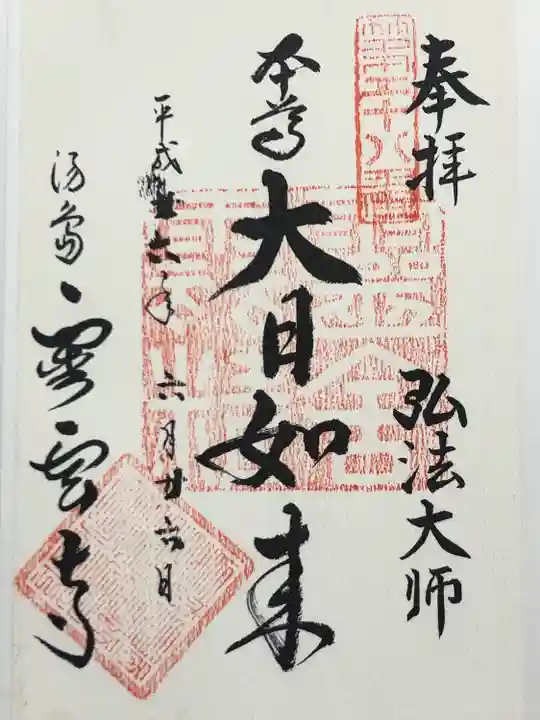 奉拝 弘法大師
本尊 大日如来
平成 六年 六月廿六日
湯島 霊雲寺